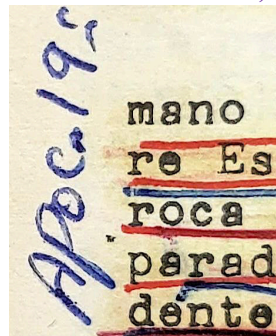 Apoc. 19:
mano
re Es
roca
parad
dente